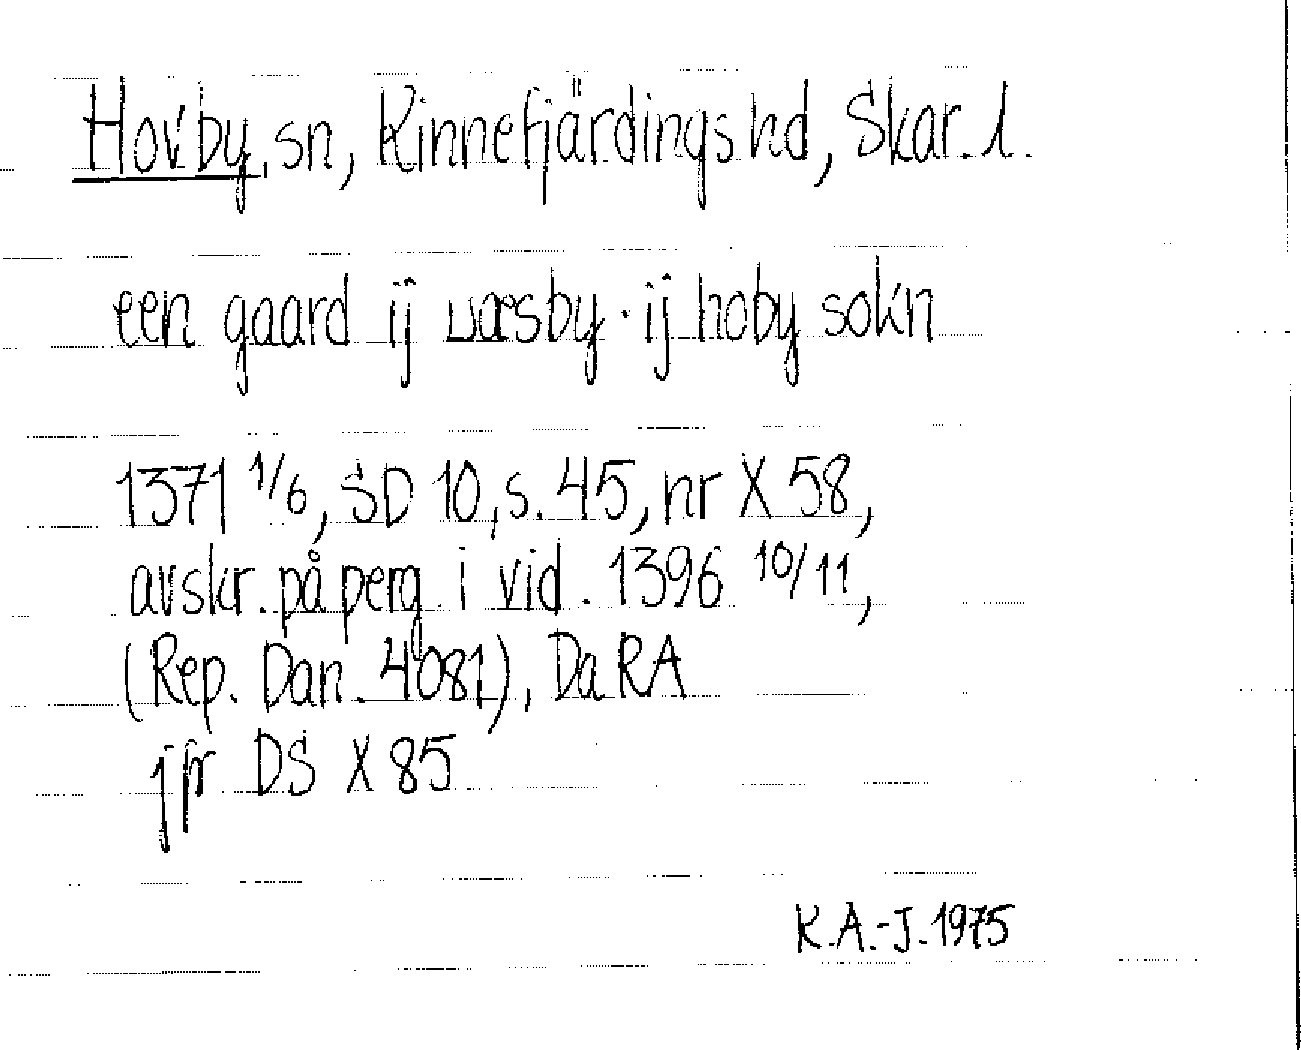 Hovby, sn, Kinnefjärdings hd, Skar. l.
een gaard ij wæsby · ij hoby sokn
1371 1/6, SD 10, s. 45, nr X 58,
avskr. på perg. i vid. 1396 10/11,
(Rep. Dan. 4081), DaRA
jfr DS X 85
K.A.-J. 1975